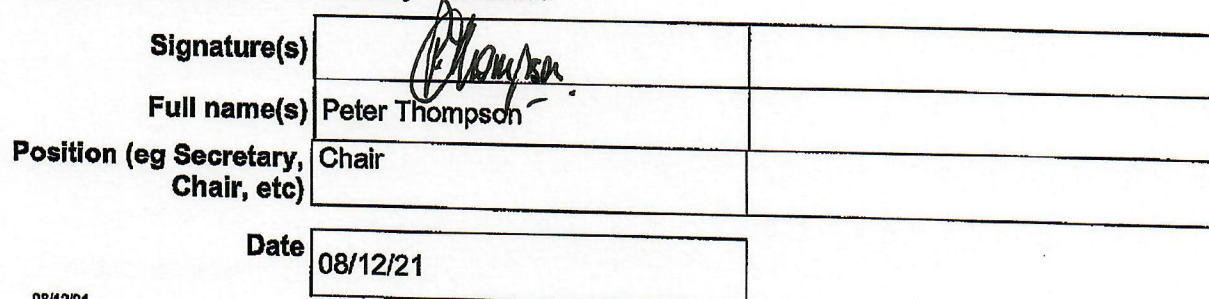 Signature(s)
P Thompson
Full name(s) Peter Thompson
Position (eg Secretary, Chair
Chair, etc)
Date 08/12/21